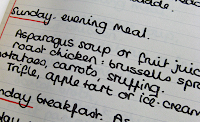 Sunday - evening meal.
Asparagus soup or fruit juic
roast chicken: brussells spro
potatoes, carrots, stuffing.
Trifle, apple tart or ice-cream
Monday breakfast. As